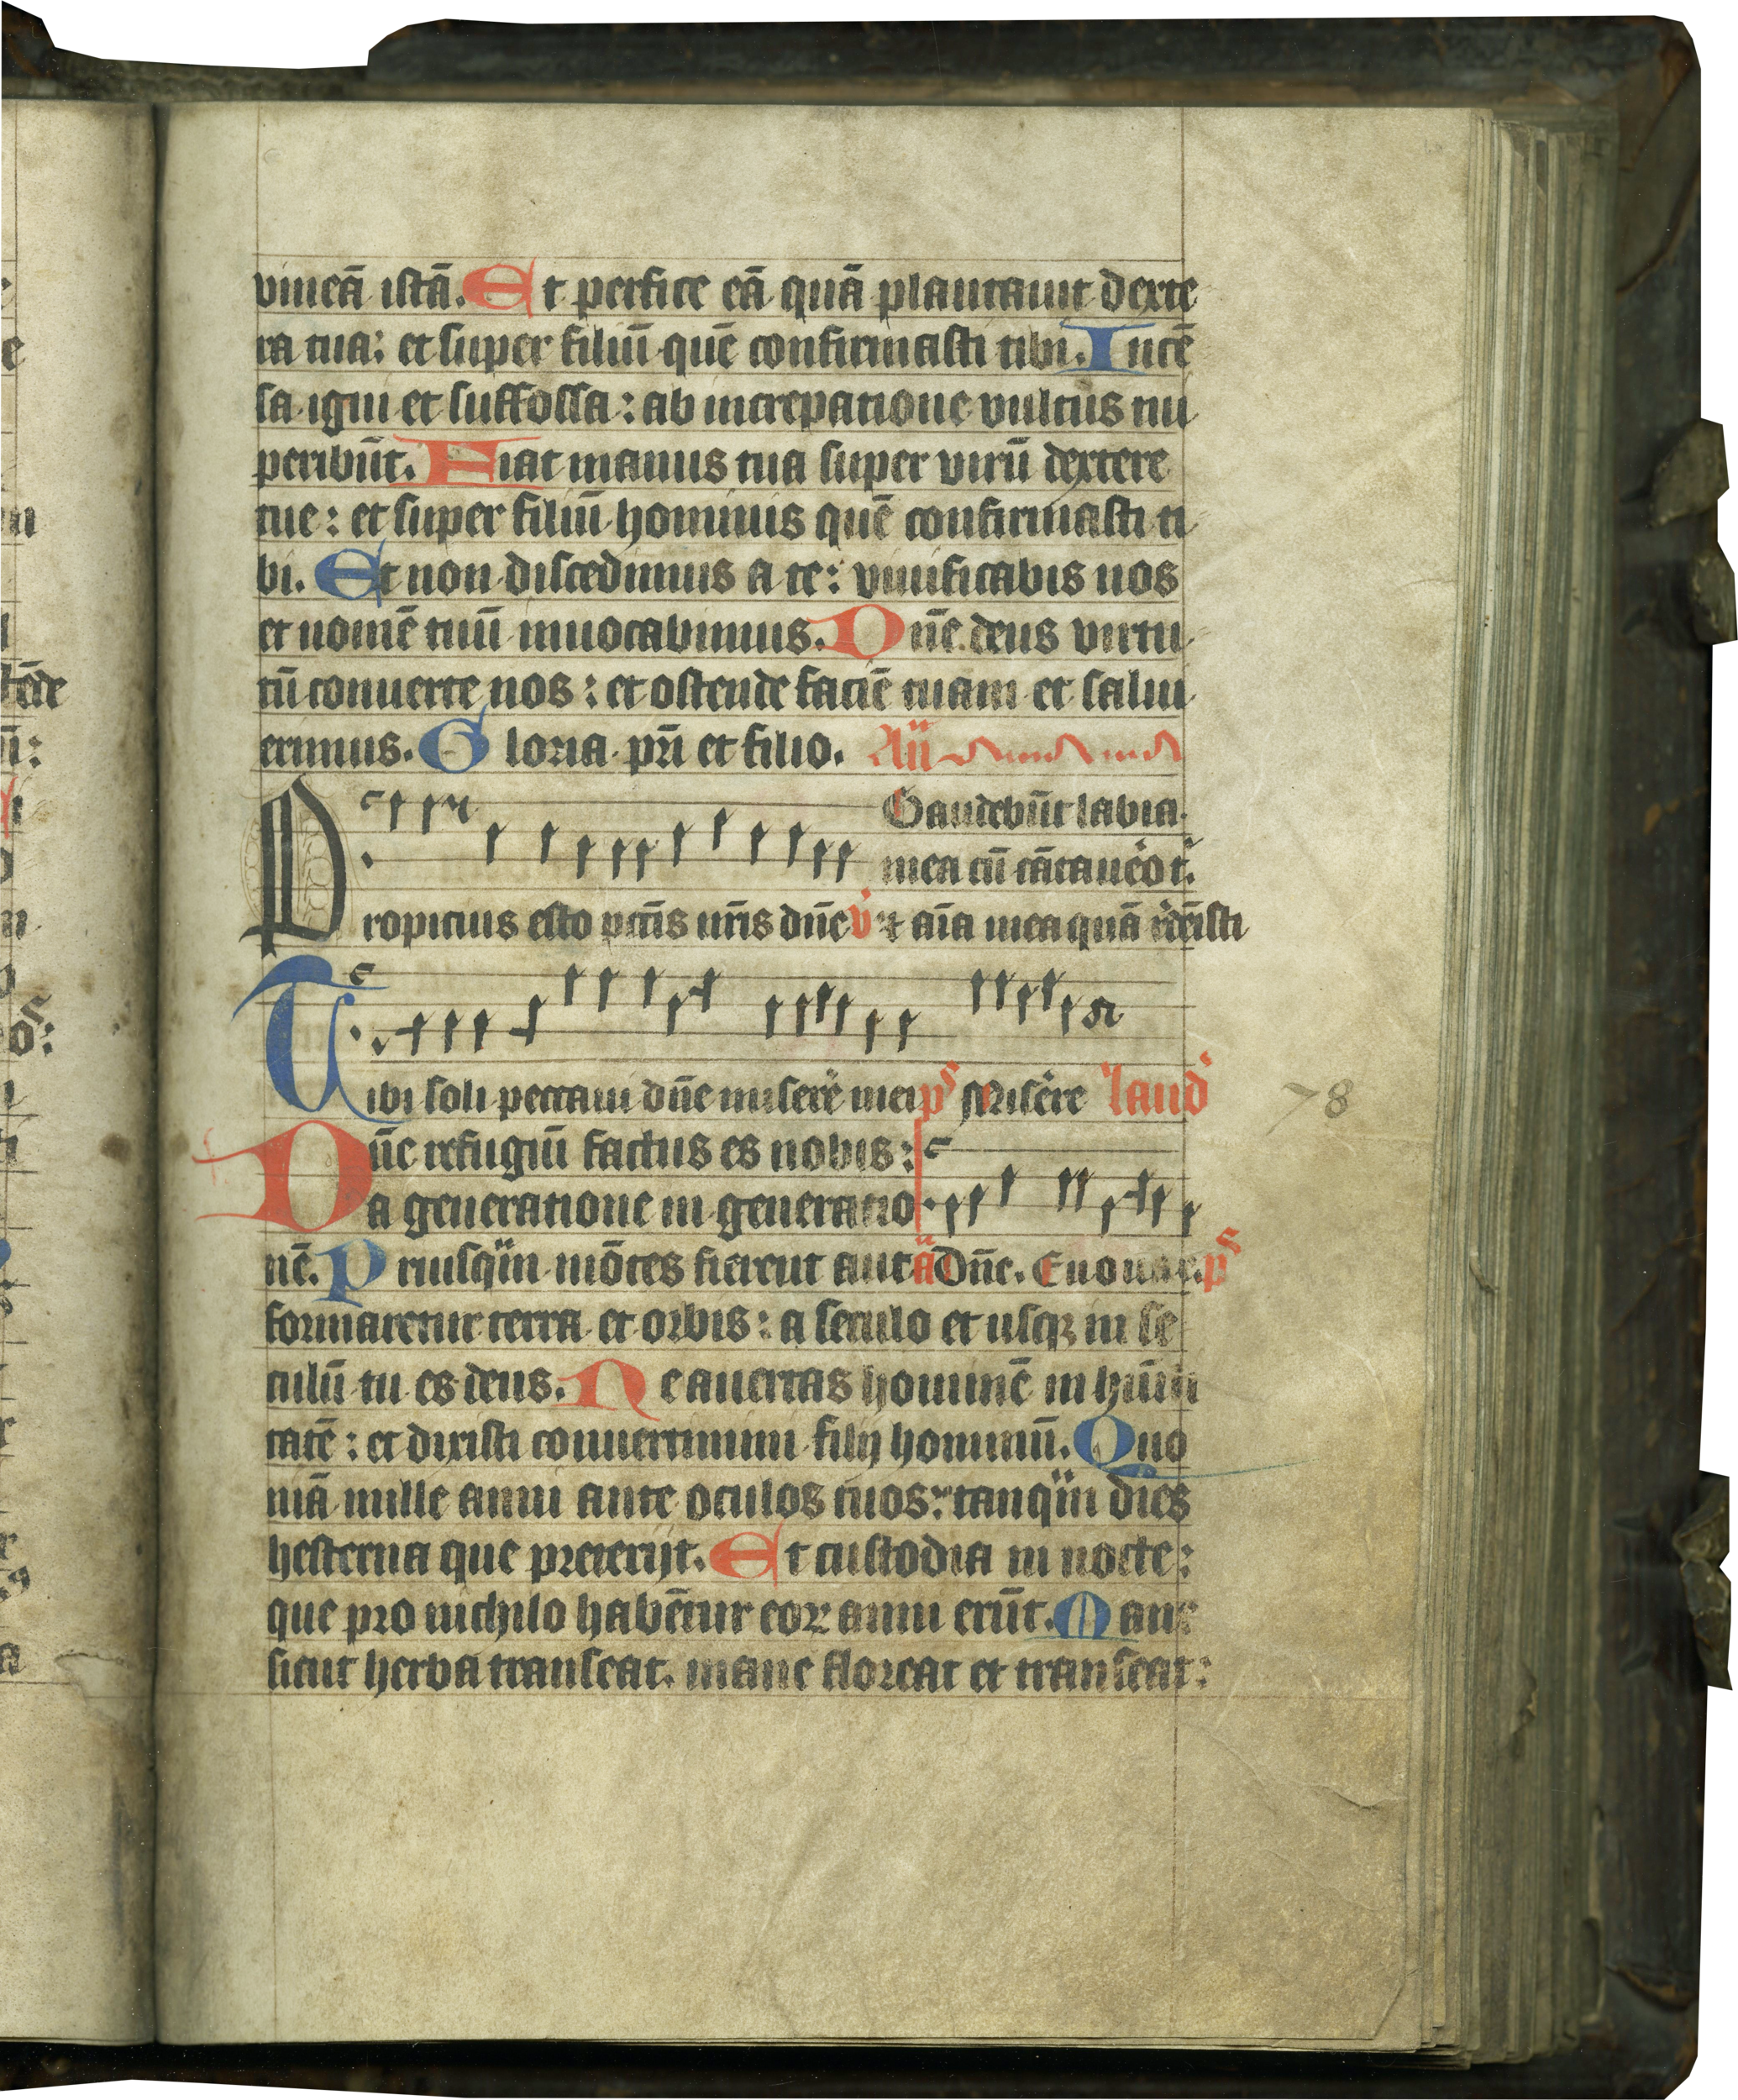 vineā istā. Et perfice eā quā plantauit dexte
ra tua: et super filiū quē confirmasti tibi. Incē
sa igni et suffossa: ab increpatione vultus tui
peribūt. Fiat manus tua super virū dextere
tue: et super filiū hominis quē confirmasti ti
bi. Et non discedimus a te: viuificabis nos
et nomē tuū inuocabimus. Dn̄e deus virtu
tū conuerte nos: et ostende faciē tuam et salui
erimus. Gloria pr̄i et filio. An̄
Gaudebūt labia
mea cū cātauēo t.
Propicius esto pctīs nr̄is dn̄e v̓ Et aīa mea quā rdēisti
Tibi soli peccaui dn̄e miserē mei ps Miserē laud
Dn̄e refugiū factus es nobis:
a generatione in generatio
nē. Priusqm̄ mōtes fierent aut ā Dn̄e. Euouae. ps
formaretur terra et orbis: a seculo et usqꝫ in se
culū tu es deus. Ne auertas hominē in hūili
tatē: et dixisti conuertimini filij hominū. Quo
niā mille anni ante oculos tuos: tanqm̄ dies
hesterna que preterijt. Et custodia in nocte:
que pro nichilo habētur eoꝝ anni erūt. Mane
sicut herba transeat. mane floreat et transeat:
78